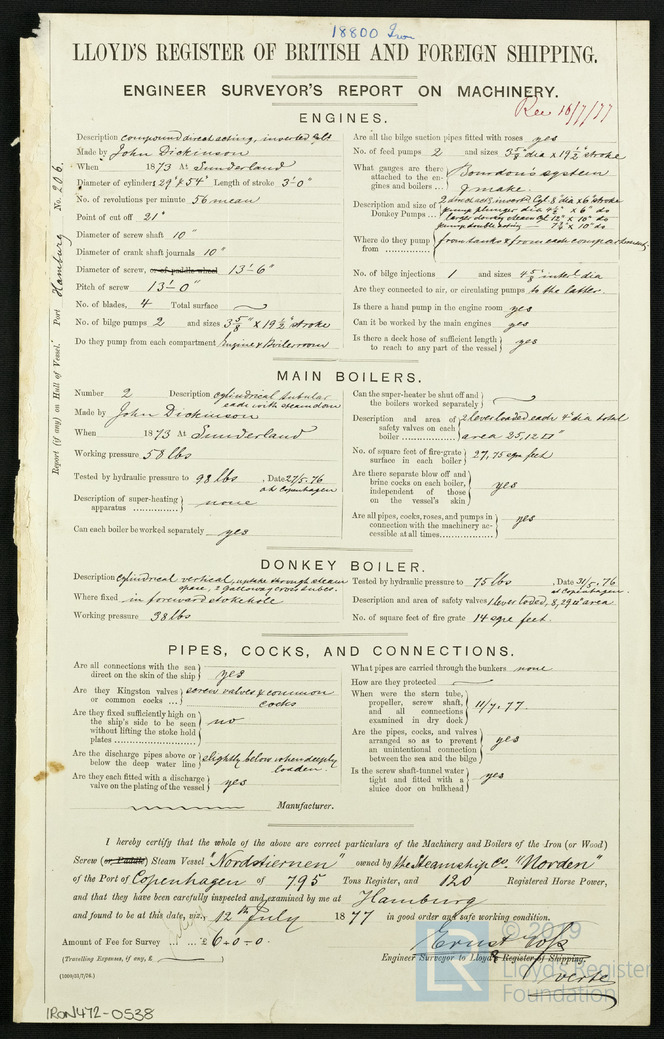 18800 Iron
LLOYD'S REGISTER OF BRITISH AND FOREIGN SHIPPING.
ENGINEER SURVEYOR'S REPORT ON MACHINERY.
Rec 16/7/77
No. 206.
Port Hamburg
Report (if any) on Hull of Vessel.
ENGINES.
Description compound direct acting, inverted Cyl.
Made by John Dickinson
When 1873 At Sunderland
Diameter of cylinders 29" & 54" Length of stroke 3'-0"
No. of revolutions per minute 56 mean
Point of cut off 21"
Diameter of screw shaft 10"
Diameter of crank shaft journals 10"
Diameter of screw, or of paddle wheel 13'-6"
Pitch of screw 13'-0"
No. of blades, 4 Total surface
No. of bilge pumps 2 and sizes 3 5/8" x 19 1/2" stroke
Do they pump from each compartment Engine & Boilerroom
Are all the bilge suction pipes fitted with roses yes
No. of feed pumps 2 and sizes 3 5/8" dia x 19 1/2" stroke
What gauges are there attached to the engines and boilers ... Bourdon's system & make.
Description and size of Donkey Pumps ... 2 direct actg, invertd Cyl 8" dia x 6" stroke
pump plunger dia 4 1/2" x 6" do
larger donkey steam Cyl 12" x 10" do
pump double acting — 7 1/2" x 10" do
Where do they pump from from tanks & from each compartment
No. of bilge injections 1 and sizes 4 5/8" interl. dia
Are they connected to air, or circulating pumps to the latter.
Is there a hand pump in the engine room yes
Can it be worked by the main engines yes
Is there a deck hose of sufficient length to reach to any part of the vessel yes
MAIN BOILERS.
Number 2 Description cylindrical tubular
each with steamdom
Made by John Dickinson
When 1873 At Sunderland
Working pressure 58 lbs
Tested by hydraulic pressure to 98 lbs , Date 27/5. 76
at Copenhagen
Description of super-heating apparatus none
Can each boiler be worked separately yes
Can the super-heater be shut off and the boilers worked separately
Description and area of safety valves on each boiler 2 lever loaded each 4" dia total
area 25,12 □"
No. of square feet of fire-grate surface in each boiler 27,75 sqre feet
Are there separate blow off and brine cocks on each boiler, independent of those on the vessel's skin yes
Are all pipes, cocks, roses, and pumps in connection with the machinery accessible at all times yes
DONKEY BOILER.
Description Cylindrical vertical, uptake through steam
space, 2 Galloway cross tubes.
Where fixed in forward stokehole
Working pressure 38 lbs
Tested by hydraulic pressure to 75 lbs , Date 31/5. 76
at Copenhagen.
Description and area of safety valves 1 lever loaded, 8,29 □" area
No. of square feet of fire grate 14 sqre feet.
PIPES, COCKS, AND CONNECTIONS.
Are all connections with the sea direct on the skin of the ship yes
Are they Kingston valves or common cocks ... screw valves & common
cocks
Are they fixed sufficiently high on the ship's side to be seen without lifting the stoke hold plates no
Are the discharge pipes above or below the deep water line slightly below when deeply
loaden.
Are they each fitted with a discharge valve on the plating of the vessel yes
What pipes are carried through the bunkers none
How are they protected
When were the stern tube, propeller, screw shaft, and all connections examined in dry dock 11/7. 77.
Are the pipes, cocks, and valves arranged so as to prevent an unintentional connection between the sea and the bilge yes
Is the screw shaft-tunnel water tight and fitted with a sluice door on bulkhead yes
Manufacturer.
I hereby certify that the whole of the above are correct particulars of the Machinery and Boilers of the Iron (or Wood)
Screw (or, Paddle) Steam Vessel "Nordstiernen" owned by the Steamship Co. "Norden"
of the Port of Copenhagen of 795 Tons Register, and 120 Registered Horse Power,
and that they have been carefully inspected and examined by me at Hamburg
and found to be at this date, viz., 12th July 1877 in good order and safe working condition.
Amount of Fee for Survey ... ... £ 6-0-0.
(Travelling Expenses, if any, £
Engineer Surveyor to Lloyd's Register of Shipping.
(1000/31/7/76.)
© 2019
LR Lloyd's Register
Foundation
IRON472-0538